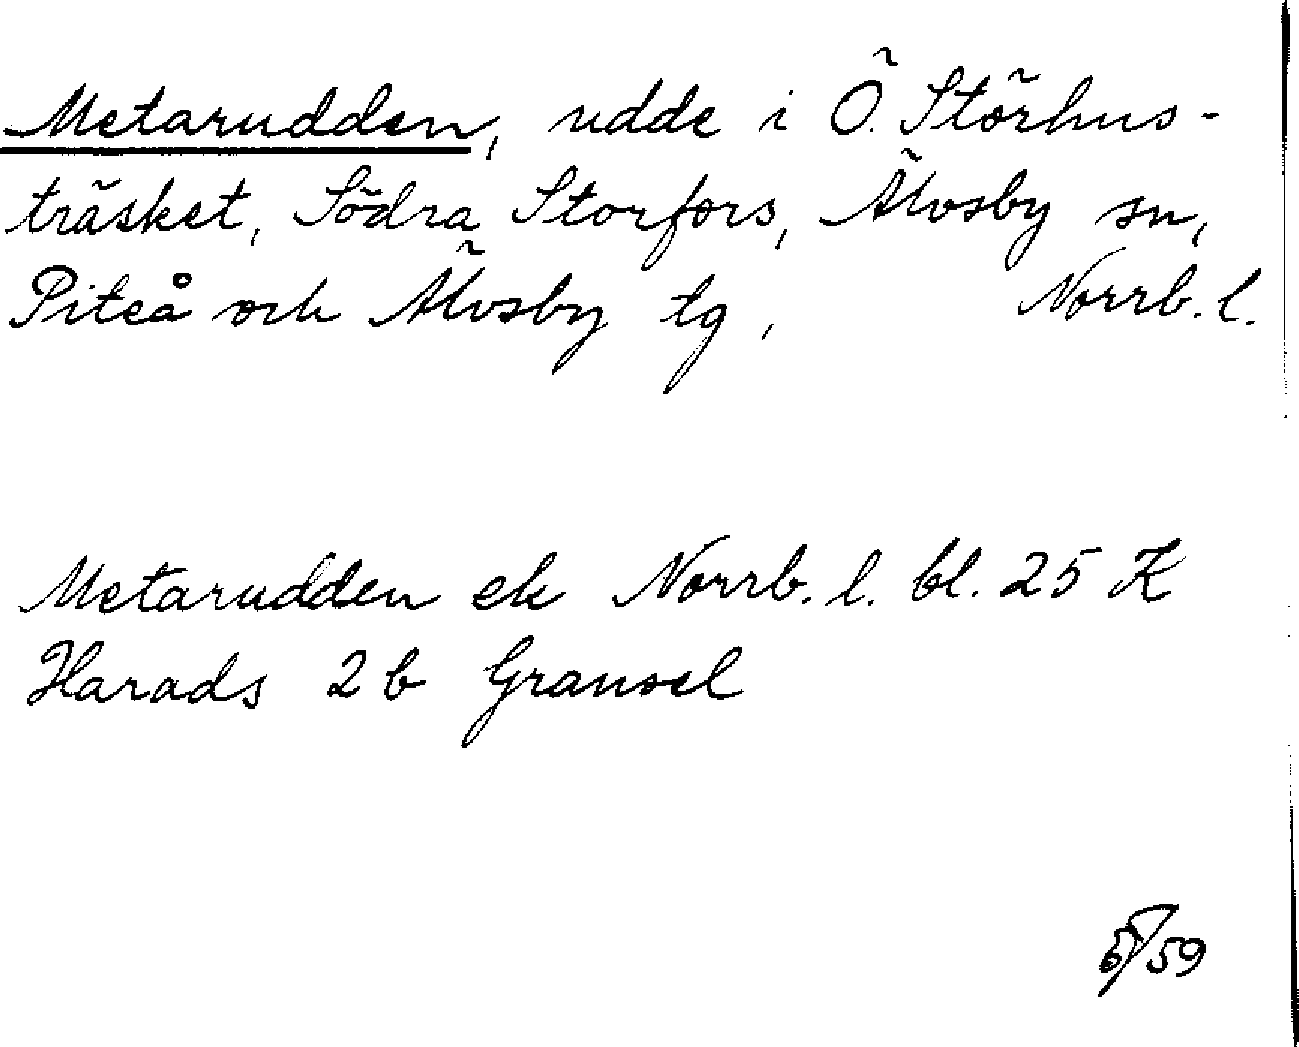 Metarudden, udde i Ö. Störhus-
träsket, Södra Storfors, Älvsby sn,
Piteå och Älvsby tg, Norrb. l.
Metarudden ek Norrb. l. bl. 25 K
Harads 2 b Gransel
/59